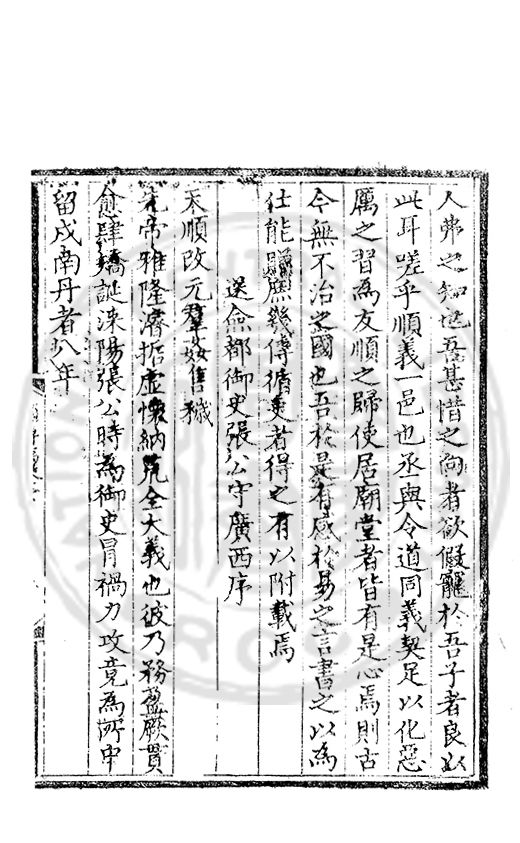 人弗之知也吾甚惜之向者欲假寵於吾子者良以
此耳嗟乎順義一邑也丞與令道同義契足以化惡
厲之習為友順之歸使居廟堂者皆有是心焉則古
今無不治之國也吾於是有感於易之言書之以為
仕能驩庶幾傳循吏者得之有以附載焉
送僉都御史張公守廣西序
天順改元羣奸售穢
先帝雅隆濬哲虛懷納荒全大義也彼乃務盈厥貫
愈肆矯誣溧陽張公時為御史冒禍力攻竟為所中
留戍南丹者八年